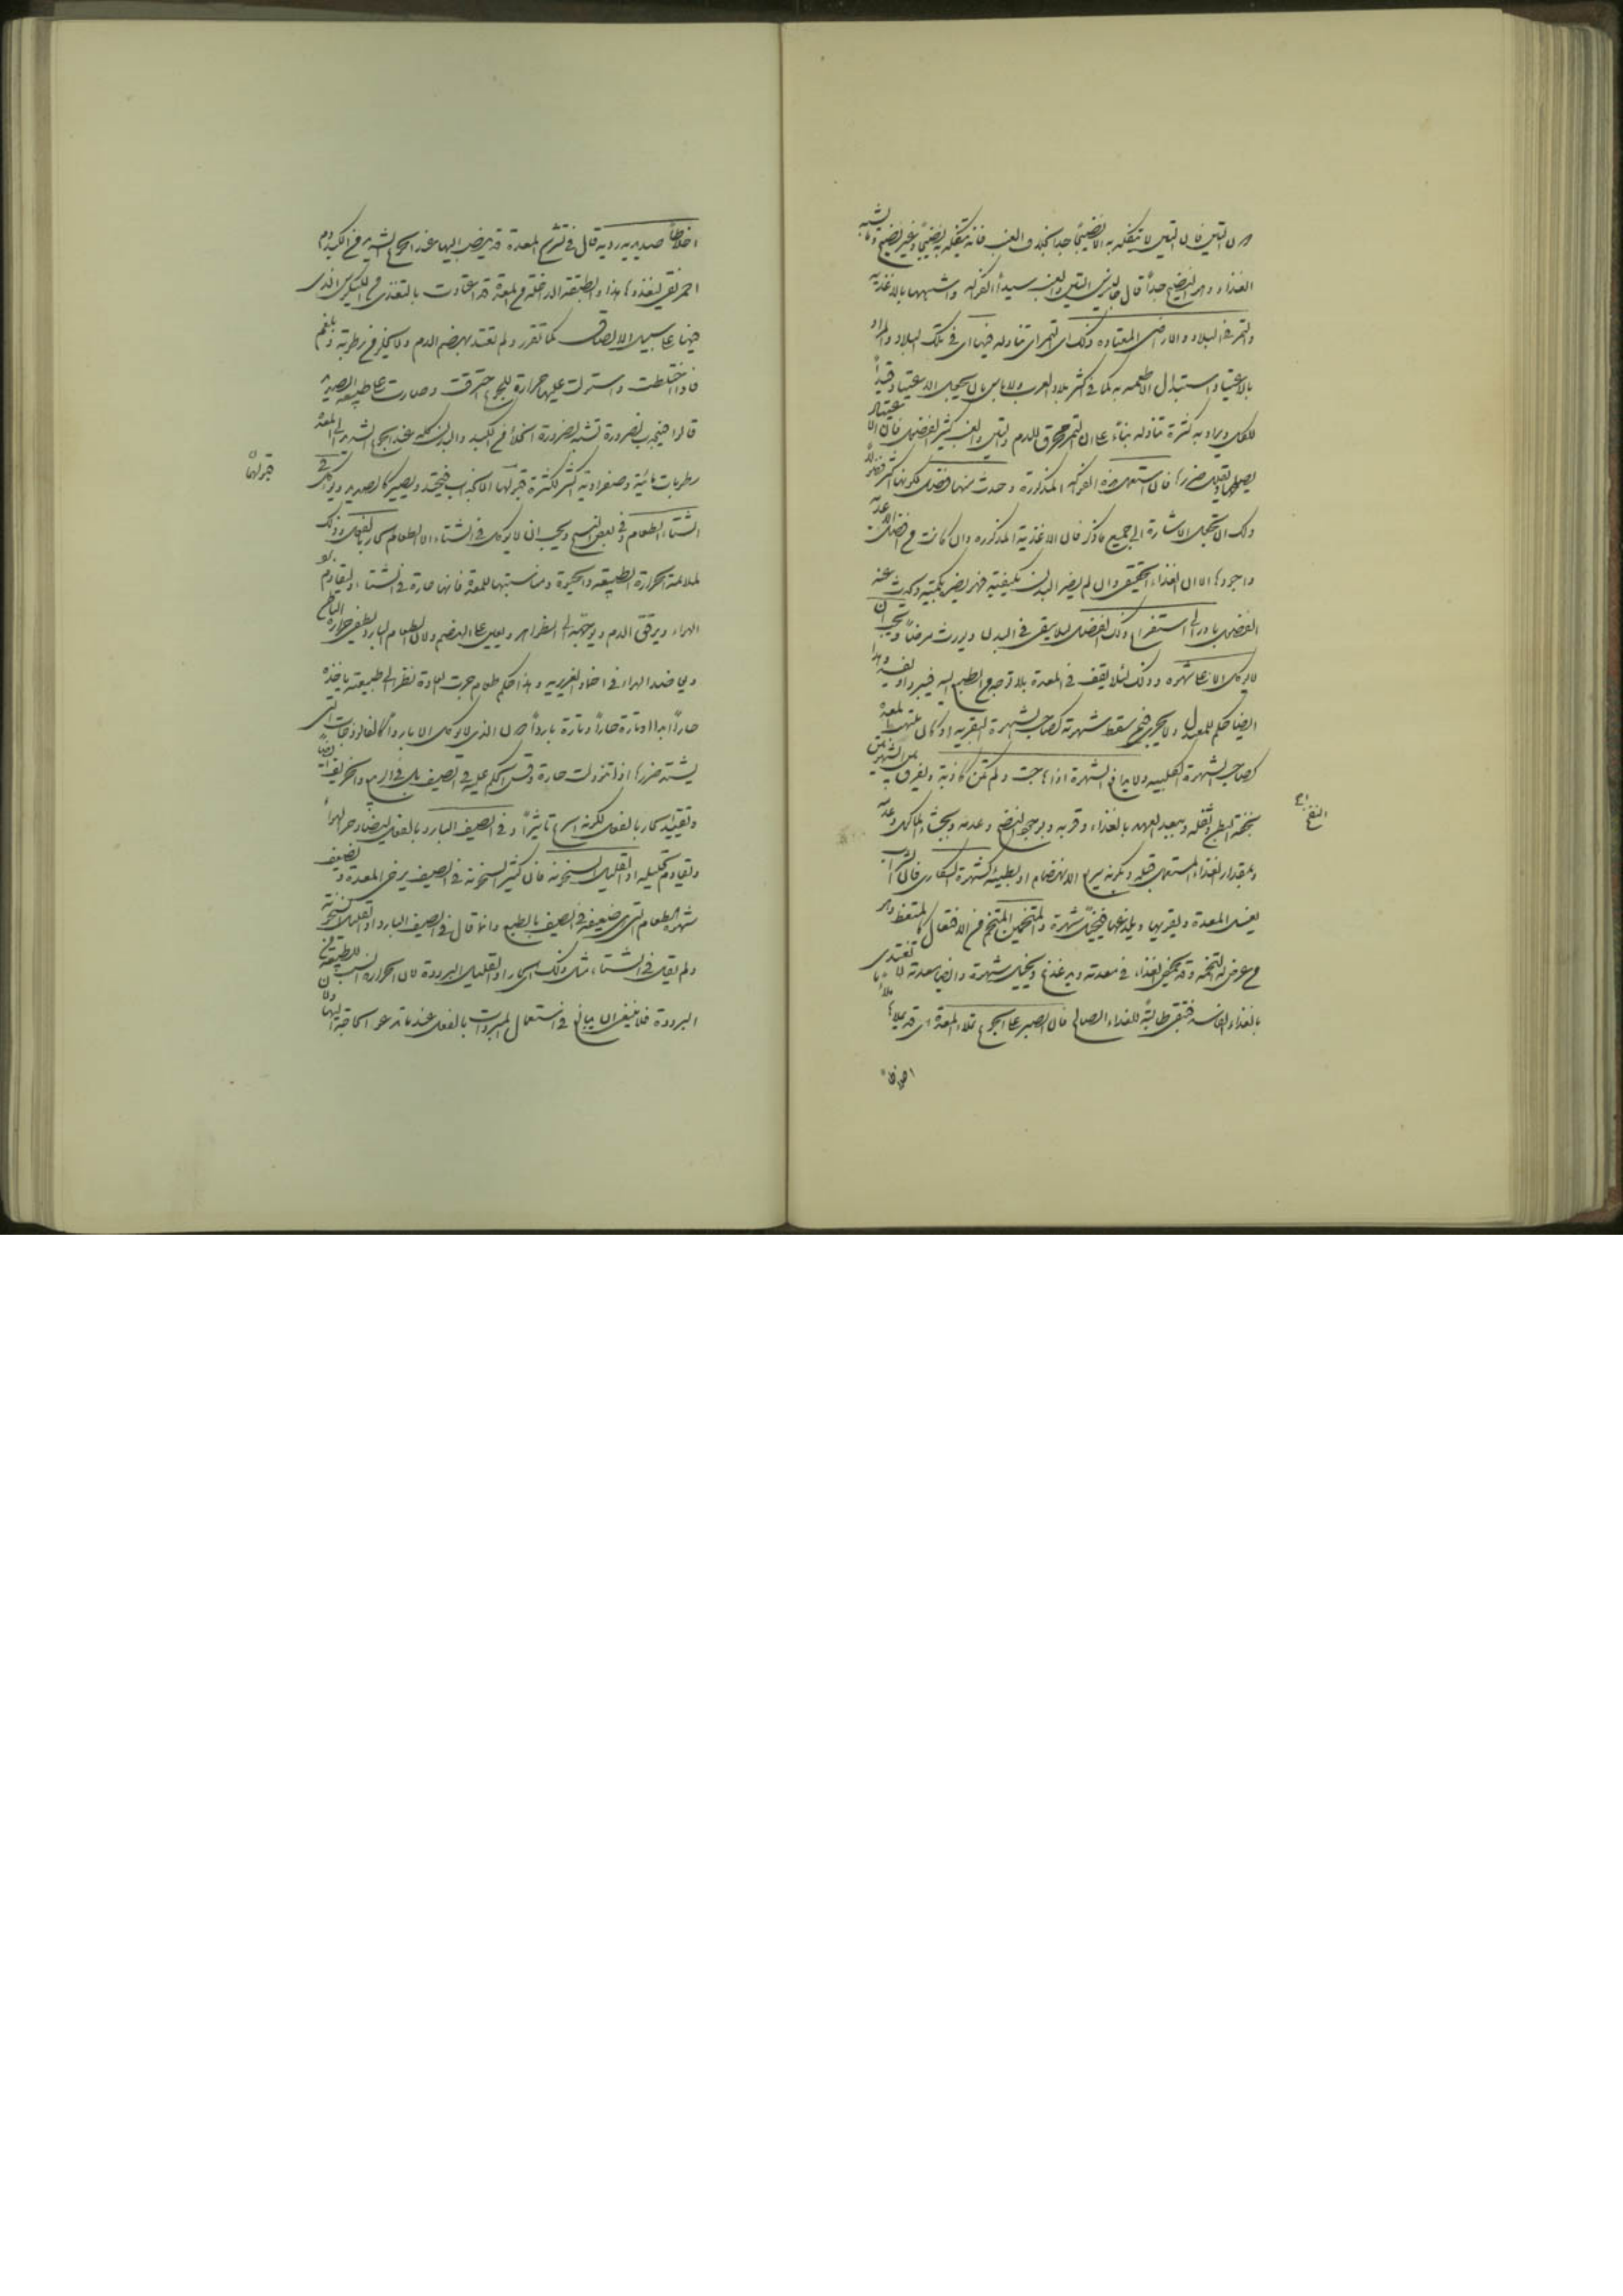 من التين فان التين لا يتفكه به الا نضيجاً جدا بخلاف العنب فانه يتفكه به نضيجاً وغير نضيج وما يشبه
الغذاء وهو النضيج جداً قال جالينوس التين والعنب سيدا الفواكه واشبهها بالاغذية
والتمر في البلاد والاراضي المعتاده وذلك اي التمر اي تناوله فيها اي في تلك البلاد والمراد
بالاعتياد استبدال الاطعمه به كما في اكثر بلاد العرب ولا باس بان يجعل الاعتياد قيداً
للكل ويراد به كثرة تناوله بناء على ان التمر محرق للدم والتين والعنب كثير الفضول فان الاعتياد
يصلحها ويقلل ضررها فان استعمل هذه الفواكه المذكورة وحدث منها فضل لكونها اكثر فضولاً
ولك ان تجعل الاشارة الى جميع ما ذكر فان الاغذية المذكوره وان كانت من افضل الاغذية
واجودها الا ان الغذاء الحقيقي وان لم يضر البدن بكيفيته فهو يضر بكميته وحدث عنه
الفضل بادر الى استفراغ ذلك الفضل لئلا يبقى في البدن ويورث مرضاً ويجب ان
لا يوكل الا على شهوه وذلك لئلا يقف في المعدة بلا توجه من الطبع اليه فيبرد او يفسد وهذا
ايضا حكم للمعتدل ولا يجري فيمن سقط شهوته كصاحب الشهوة البقريه او كان علتها المعدة
كصاحب الشهوة الكلبيه ولا يدافع الشهوة اذا هاجت ولم تكن كاذبة ويفرق بين الشهوتين
بخفة البطن وثقله وببعد العهد بالغذاء وقربه وبوجود النضج وعدمه وبحث الماكول وعدمه
وبمقدار الغذاء المستعمل قبله وبكونه سريع الانهضام او بطيئه كشهوة السكارى فان الشراب
يغسل المعدة ويقويها ويلذعها فيتخيل شهوة والمتخمين المتخم من الافتعال كالمتعظ وهو
من عرض له التخمه وقد تمحض الغذاء في معدته ويدغدغ ويتخيل شهوة وايضا معدته لا تغتذي
بالغذاء الفاسد فتبقى طالبة للغذاء الصالح فان الصبر على الجوع يملأ المعدة اي قد يملأها
النضج
اخلاطاً
اخلاطاً صديديه رديه قال في تشريح المعدة قد ينصب اليها عند الجوع الشديد من الكبد دم
احمر نقي ليغذوها هذا والطبقة الداخلة من المعدة قد اعتادت بالتغذي من الكيلوس الذي
فيها على سبيل الالصاق كما تقرر ولم تعتد بهضم الدم ولا يخلو من رطوبة وبلغم
فاذا اختلطت واستولت عليها حرارة الجوع احترقت وصارت على طبيعة الصديد
قالوا فينجذب لضرورة تشبه لضرورة الخلأ من الكبد والبدن كله عند الجوع الشديد الى المعدة
رطوبات مائية وصفراوية اكثر لكثرة قبولها الانجذاب فيحتد ويصير كالصديد ويوكل في
الشتاء الطعام وفي بعض النسخ ويجب ان لا يوكل في الشتاء الا الطعام الحار بالفعل وذلك
لملائمة الحرارة الطبيعة والحيوة ومناسبتها للمعدة فانها حارة في الشتاء وليقاوم برد
الهواء ويرقق الدم ويوجهه الى الظواهر ويعين على الهضم ولان الطعام البارد يطفي حرارة الباطن
ويعاضد الهواء في اخماد الغريزيه وهذا حكم طعام جرت العادة نظرا الى طبيعته باخذه
حاراً ابدا او تارة حاراً وتارة بارداً من الذي لا يوكل الا بارداً كالفالوذجات التي
يشتد ضررها اذا تنوولت حارة وقس الحكم عليه في الصيف بل في الربيع والخريف ايضاً
وتقييد الحار بالفعل لكونه اسرع تاثيراً وفي الصيف البارد بالفعل ليضاد حر الهواء
وليقاوم تحليله او القليل السخونه فان كثير السخونة في الصيف يرخى المعدة ويضعف
شهوة الطعام التي هي ضعيفة في الصيف بالطبع وانما قال في الصيف البارد او القليل السخونة
ولم يقل في الشتاء مثل ذلك اي الحار او القليل البرودة لان الحرارة انسب للطبيعة من
البرودة فلا ينبغي ان يبالغ في استعمال المبردات بالفعل عند ما تدعو الحاجة اليها ولان
قبولها